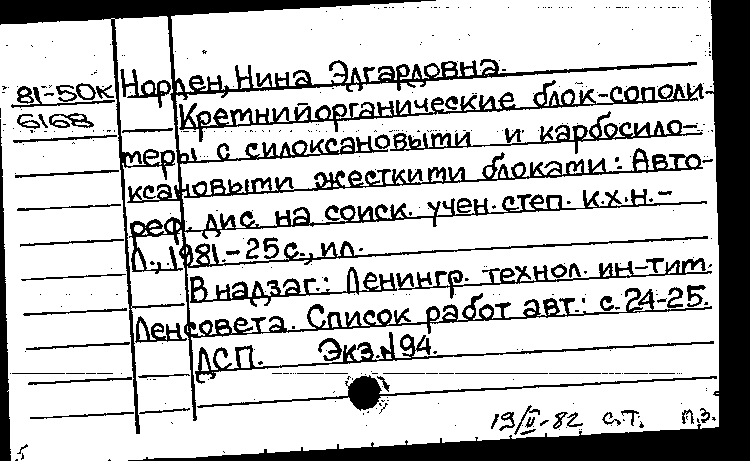 81-50к Норден, Нина Эдгардовна.
6168 Кремнийорганические блок-сополи-
меры с силоксановыми и карбосило-
ксановыми жесткими блоками: Авто-
реф. дис. на соиск. учен. степ. к.х.н.-
Л., 1981.-25с., ил.
В надзаг.: Ленингр. технол. ин-т им.
Ленсовета. Список работ авт.: с.24-25.
ДСП. Экз.№94.
19/II-82 с.т. п.з.
5